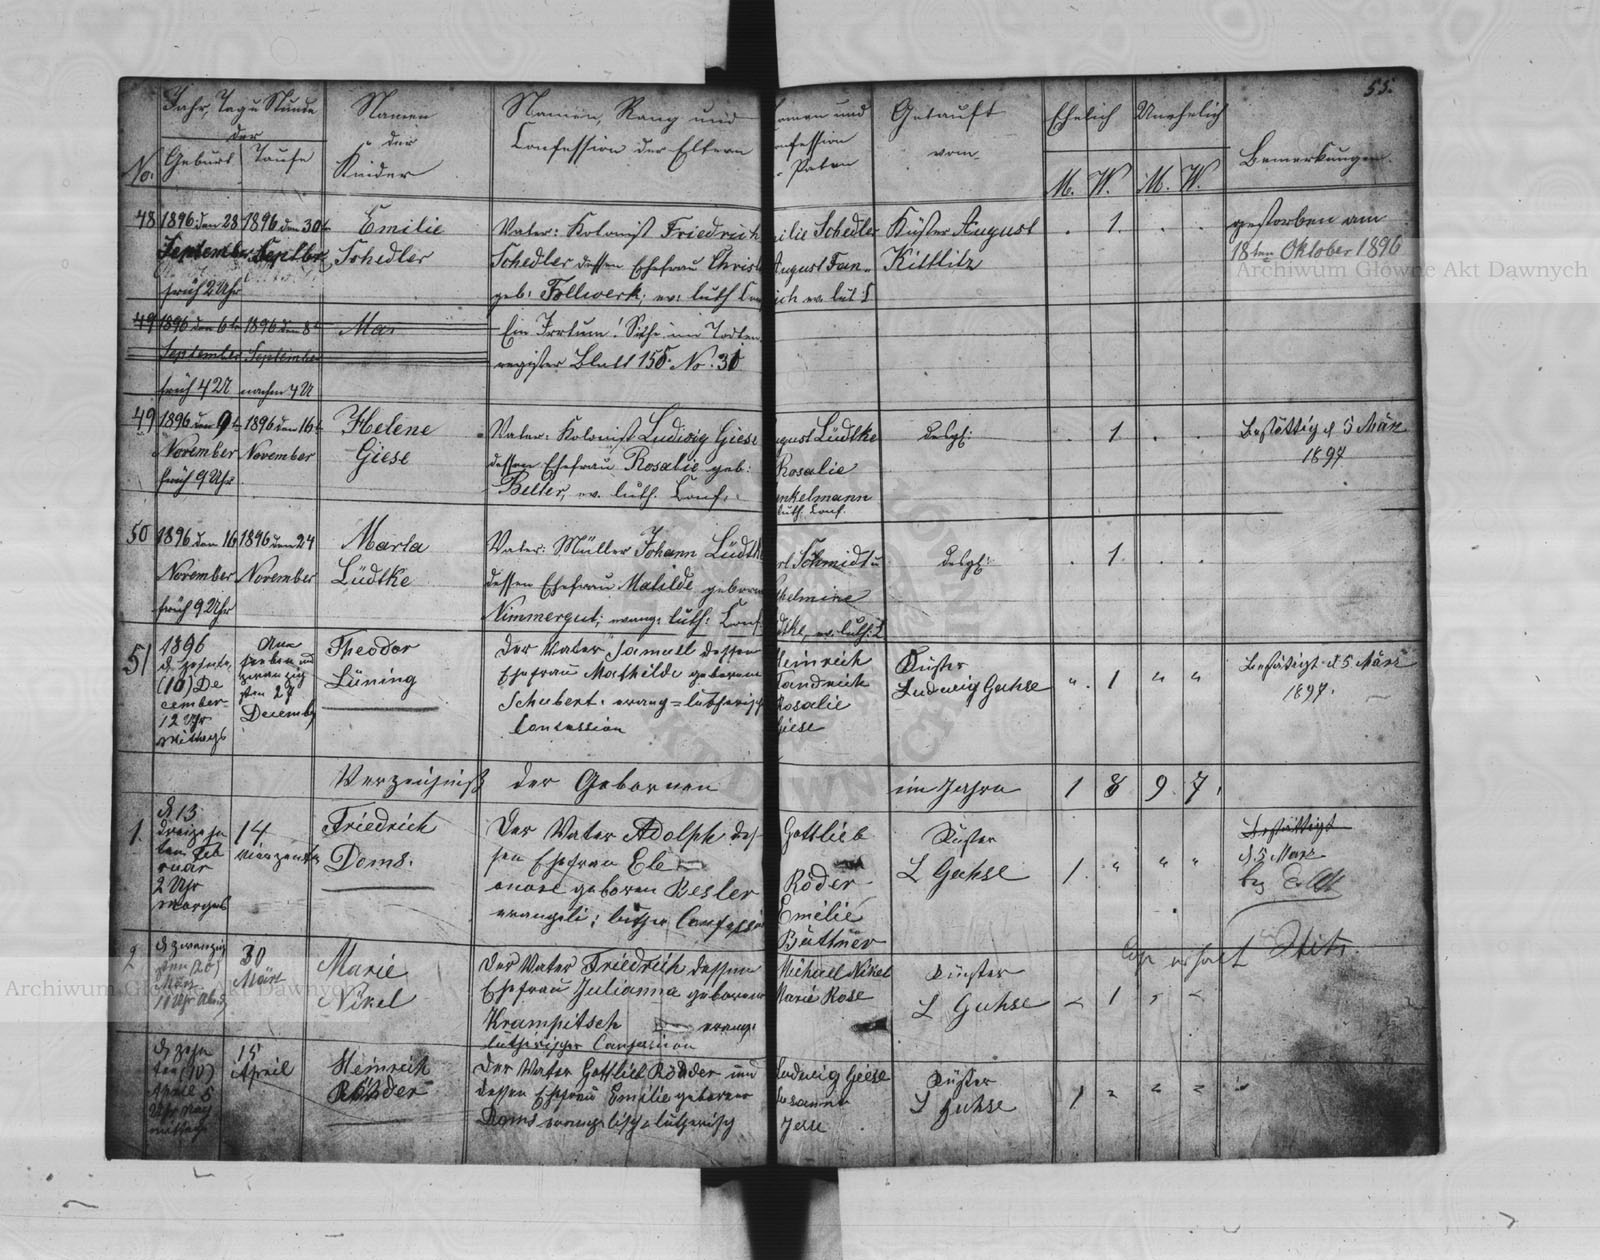 55.
Jahr, Tag u Stunde
der
No. Geburt Taufe
Namen
der
Kinder
Namen, Rang und
Confession der Eltern
amen und
nfession
Paten
Getauft
vom
Ehelich Unehelich
M. W. M. W.
Bemerkungen.
48 1896 den 28 1896 den 30t
September Septber
früh 2 Uhr
Emilie
Schedler
Vater: Kolonist Friedrich
Schedler dessen Ehefrau Christ
geb: Follwerk; ev: luth Con
ilie Schedler
August Fan
ich ev. lut:
Küster August
Kittlitz
. 1. . .
gestorben am
18ten Oktober 1896
49 1896 den 6t 1896 den 8t
September September
früh 4 U nachm 4 U
Ein Irrtum! Siehe im Todten
register Blatt 158. No. 30
49 1896 den 9t 1896 den 16t
November November
früh 9 Uhr
Helene
Giese
Vater: Kolonist Ludwig Giese
dessen Ehefrau Rosalie geb:
Belter, ev. luth. Conf.
gust Lüdtke
Rosalie
nkelmann
luth. Conf.
desgl:
. 1 . .
Bestättig d 5 März
1897
50 1896 den 16 1896 den 24
November November
früh 9 Uhr
Marta
Lüdtke
Vater: Müller Johann Lüdtk
dessen Ehefrau Matilde geboren
Nimmergut; evang: luth: Conf
rl Schmidt u
helmine
dtke, ev. luth: C
desgl:
. 1 . .
51 1896
d. zehnte
(10) De
cember
12 Uhr
Mittags
Am
sieben und
zwanzig
sten 27
December
Theodor
Lüning
Der Vater Samuel dessen
Ehefrau Mathilde geborene
Schubert. evang=lutherisch
Confession
Heinrich
Fandreich
Rosalie
Giese
Küster
Ludwig Guhse
" 1 " "
Bestätigt d 5 März
1897.
Verzeichniß der Gebornen im Jahre 1 8 9 7.
1. d 13
dreizeh
ten Feb
ruar
2 Uhr
Morgens
14
vierzente
Friedrich
Doms.
Der Vater Adolph des
sen Ehefrau Ele
onore geboren Besler
evangeli: luther Confession
Gottlieb
Röder
Emelie
Büttner
Küster
L Guhse
1. " " "
Bestättigt
d. 5 März
2 d zwanzig
sten (20)
März
11 Uhr Abends
30
März
Marie
Nikel
Der Vater Friedrich dessen
Ehefrau Julianna geborene
Krampitsch evang:
lutherischer Confession
Michael Nikel
Marie Rose
Küster
L Guhse
1
d zehn
ten (10)
Aprill 5
Uhr Nach
mittag
15
April
Heinrich
Röder
Der Vater Gottlieb Rödder und
dessen Ehefrau Emilie geborene
Doms evangelisch lutherisch
Ludwig Giese
Susanna
Jesse
Küster
L Guhse
1
Archiwum Główne Akt Dawnych
Archiwum Główne Akt Dawnych